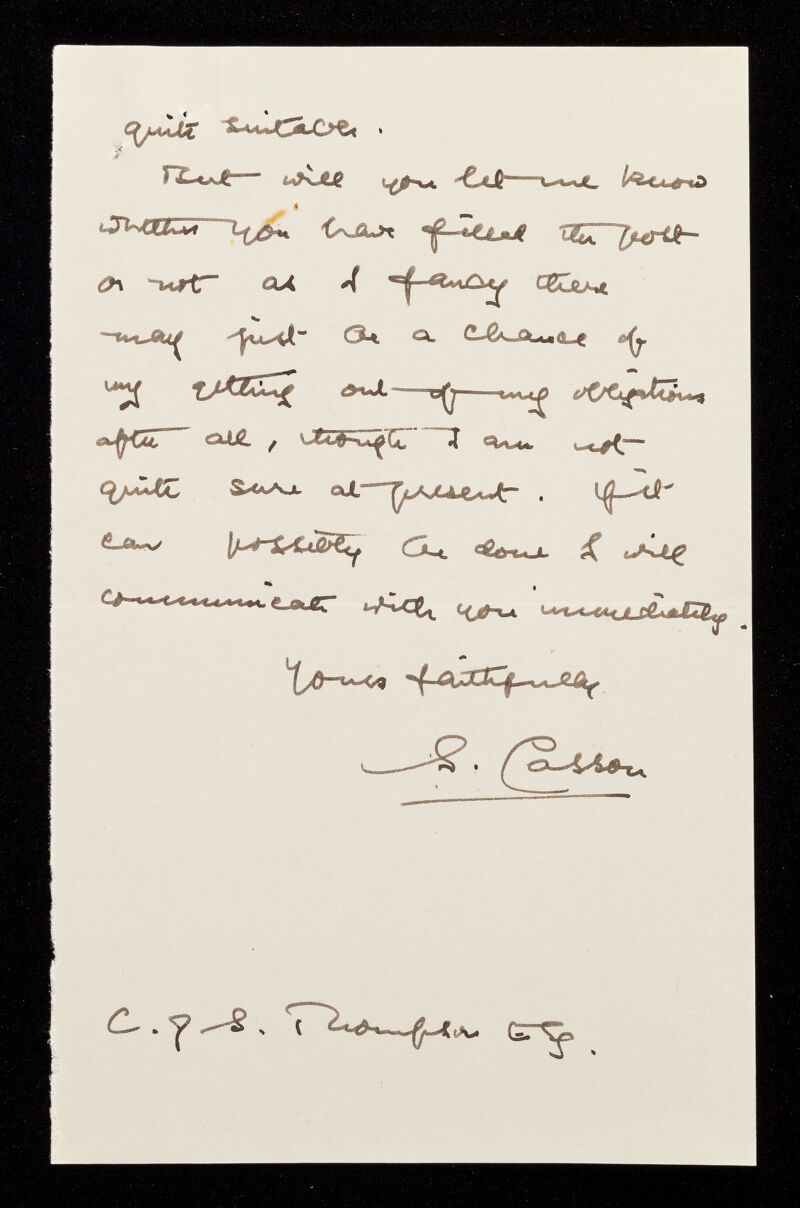 quite suitable.
But will you let me know
whether you have filled the post
or not as I fancy there
may just be a chance of
my getting out of my obligations
after all, though I am not
quite sure at present. If it
can possibly be done I will
communicate with you immediately.
Yours faithfully
S. Casson
C. J. S. Thompson Esq.